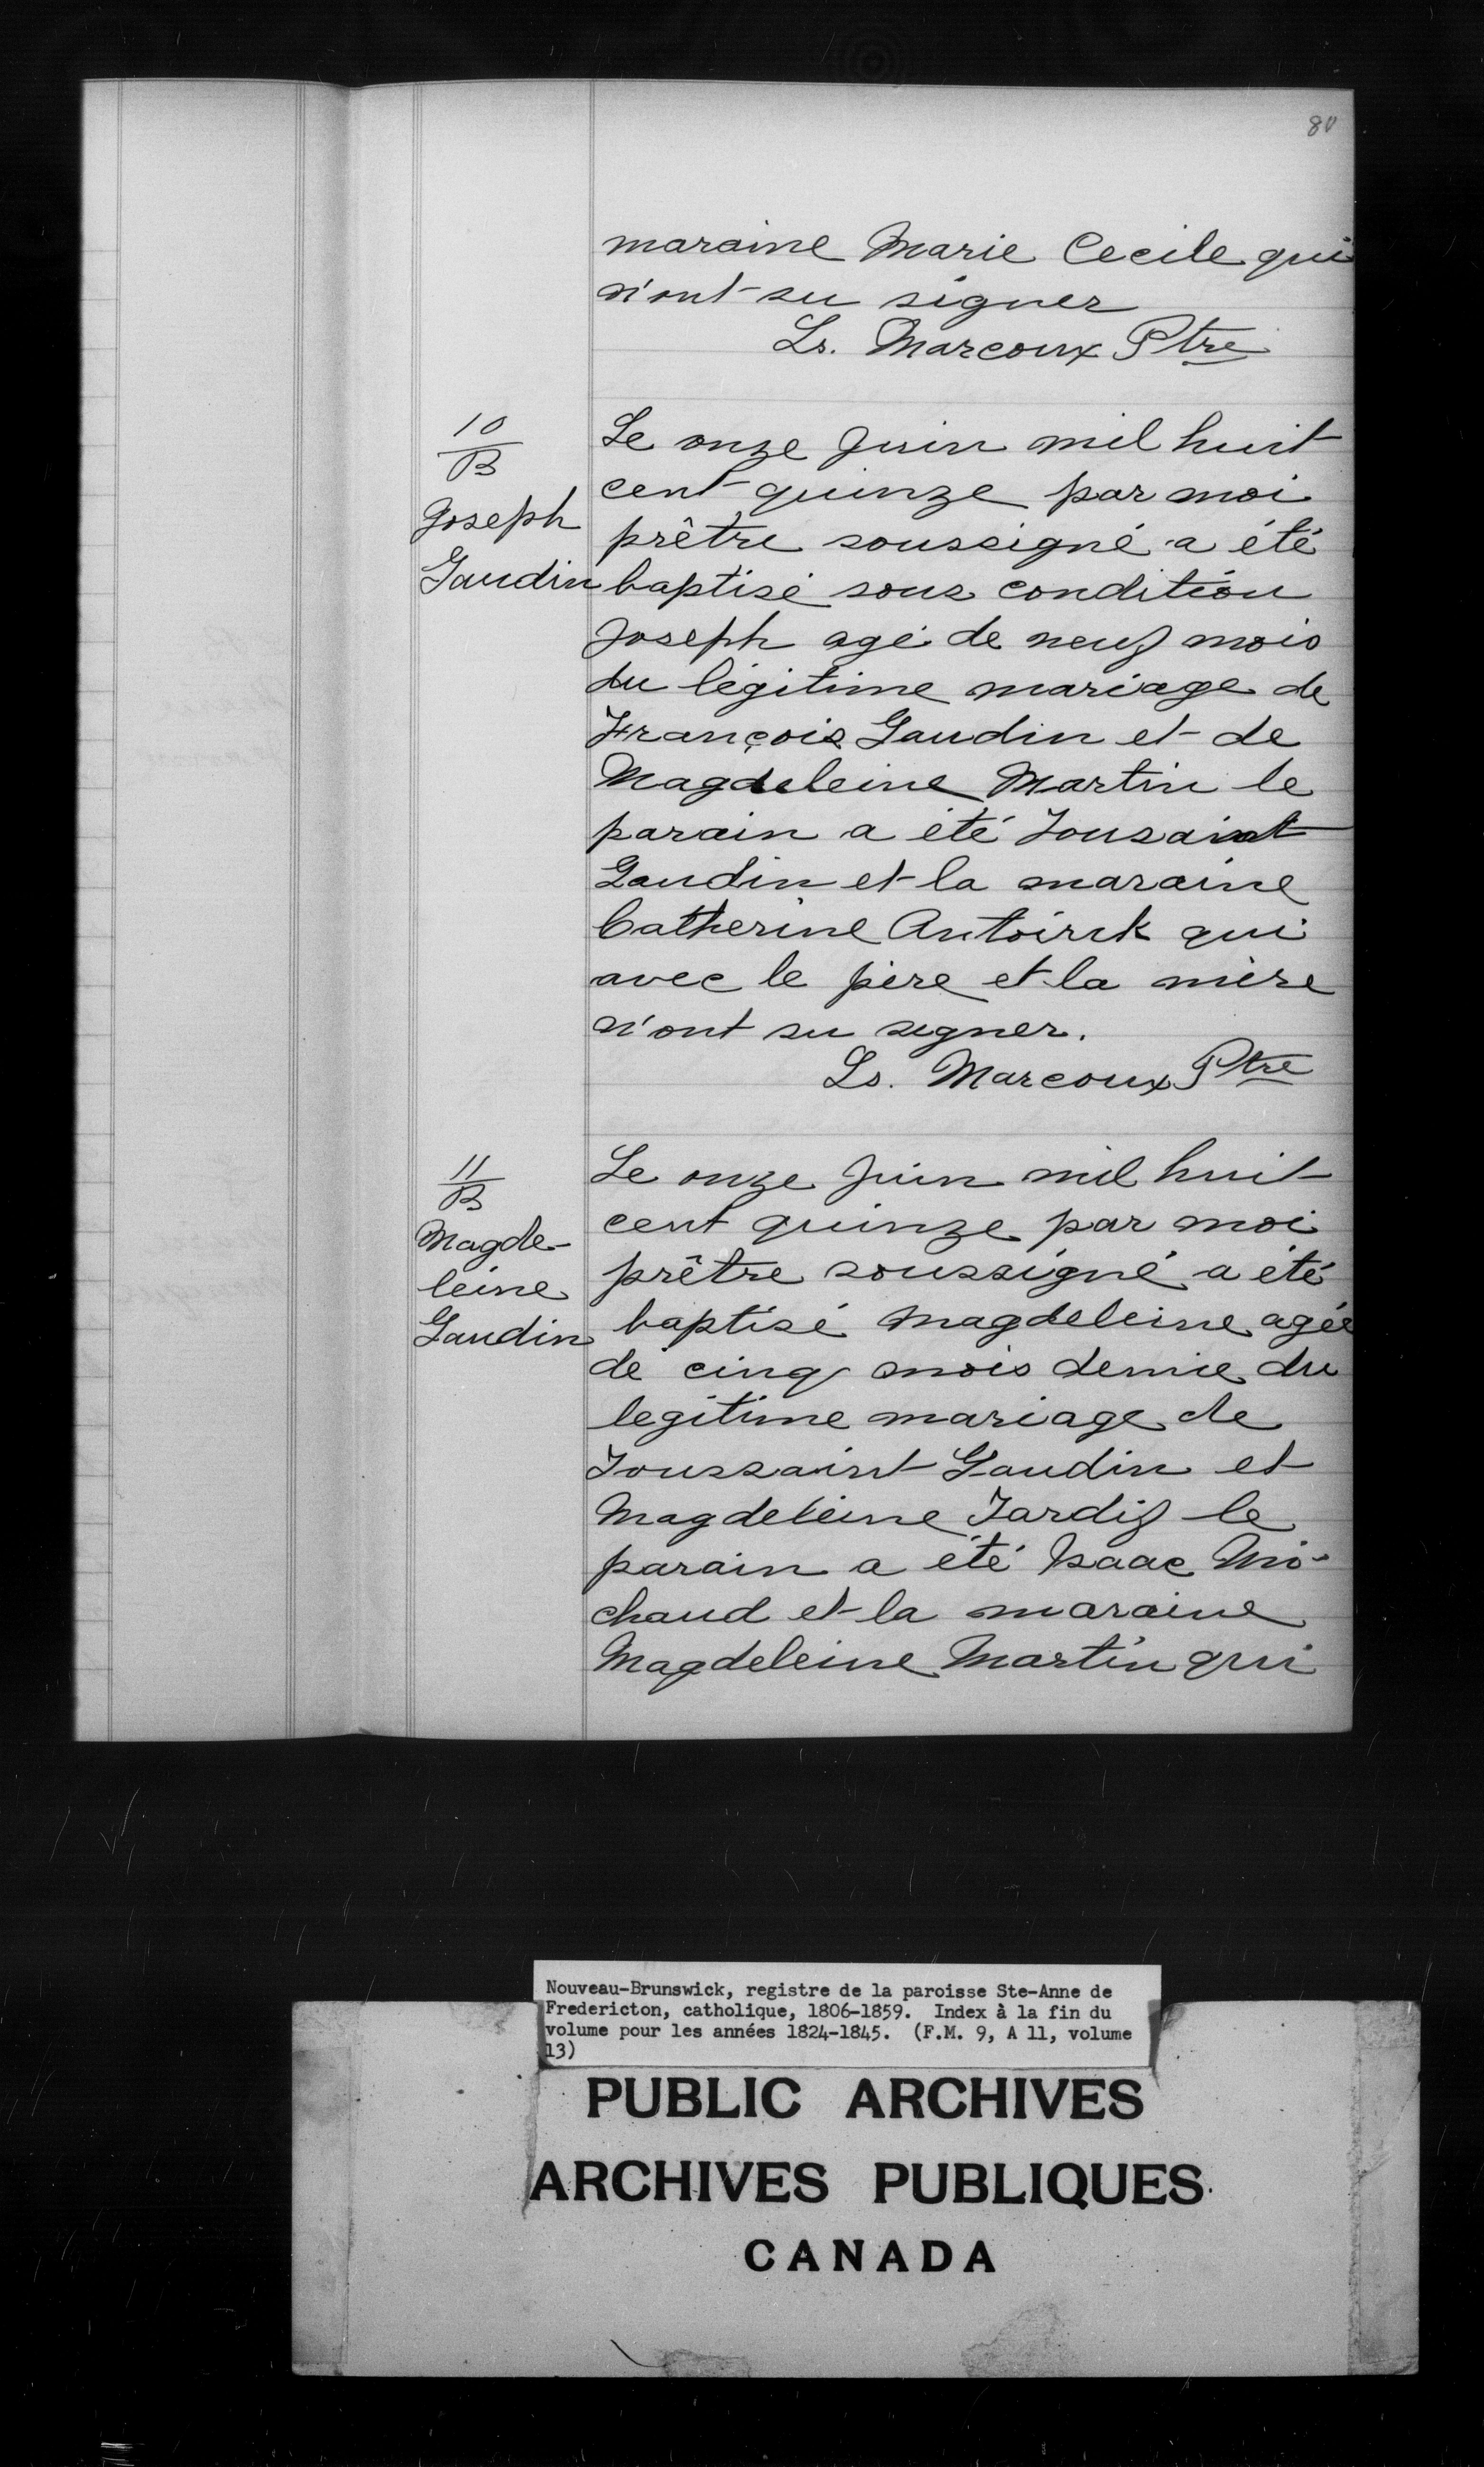 80
maraine Marie Cecile qui
n'ont su signer
Ls. Marcoux Ptre
10
B
Joseph
Gaudin
Le onze Juin mil huit
cent quinze par moi
prêtre soussigné a été
baptisé sous condition
Joseph agé de neuf mois
du légitime mariage de
François Gaudin et de
Magdeleine Martin le
parain a été Tousaint
Gaudin et la maraine
Catherine qui
avec le père et la mère
n'ont su signer.
Ls. Marcoux Ptre
11
B
Magde-
leine
Gaudin
Le onze Juin mil huit
cent quinze par moi
prêtre soussigné a été
baptisé Magdeleine agée
de cinq mois demie du
legitime mariage de
Toussaint Gaudin et
Magdeleine Tardif le
parain a été Isaac Mi-
chaud et la maraine
Magdeleine Martin qui
Nouveau-Brunswick, registre de la paroisse Ste-Anne de
Fredericton, catholique, 1806-1859. Index à la fin du
volume pour les années 1824-1845. (F.M. 9, A 11, volume
13)
PUBLIC ARCHIVES
ARCHIVES PUBLIQUES
CANADA